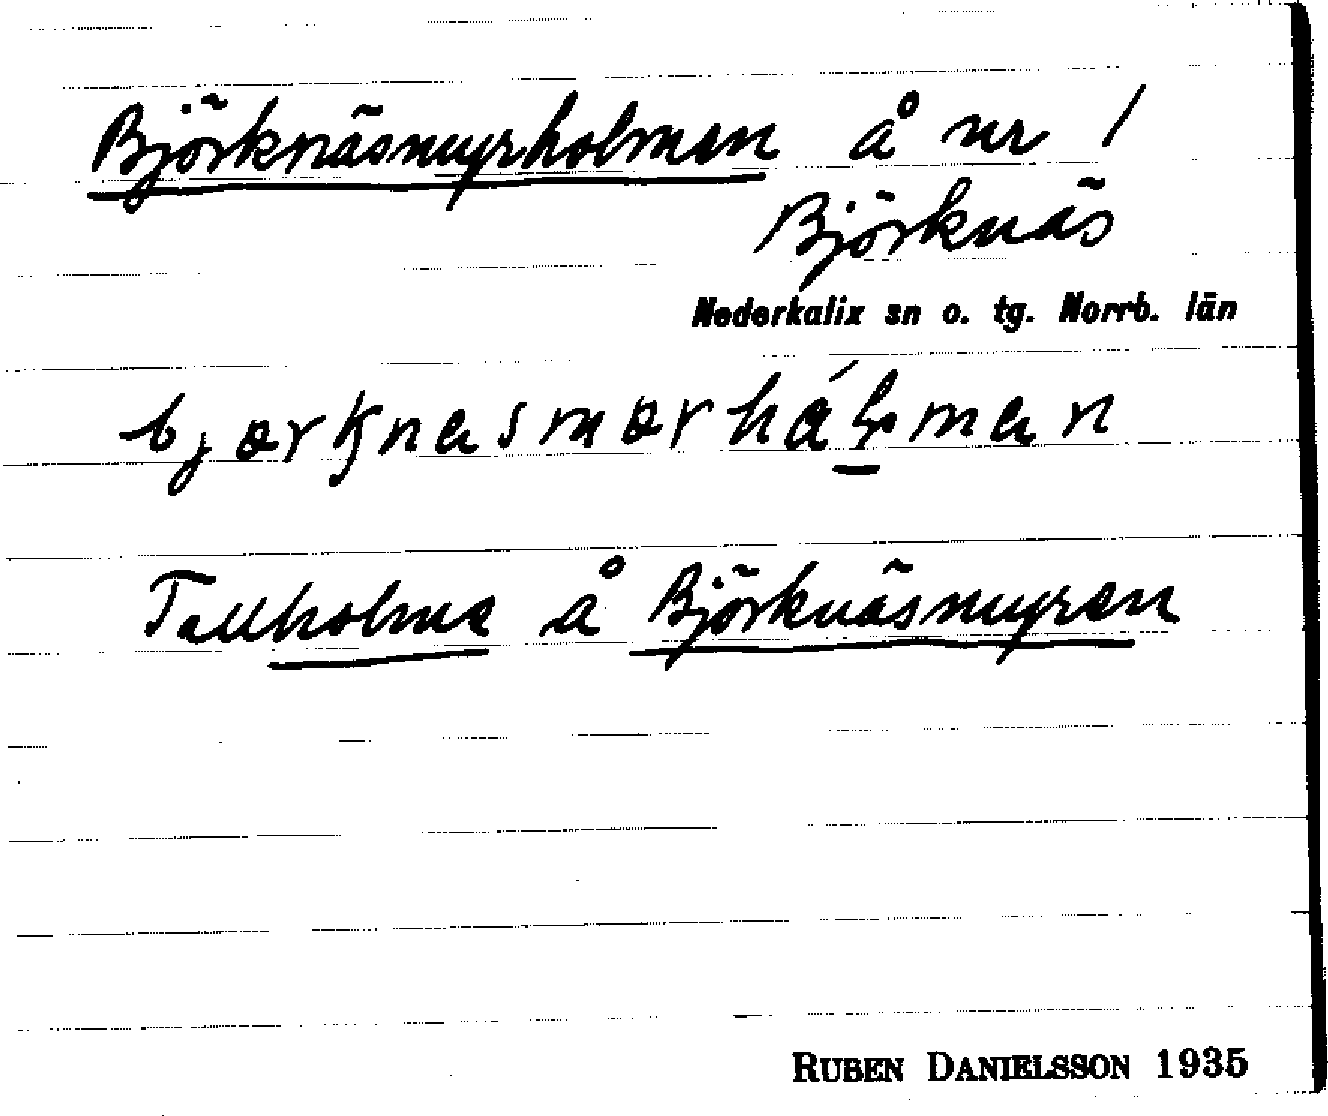 Björknäsmyrholmen å nr 1
Björknäs
Nederkalix sn o. tg. Norrb. län
Tallholme å Björknäsmyren
RUBEN DANIELSSON 1935